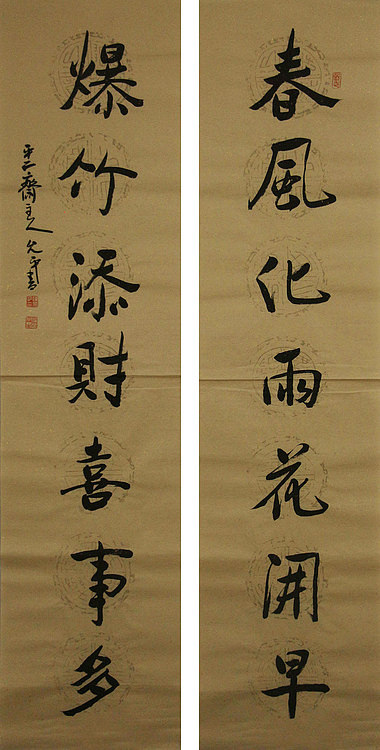 春風化雨花開早
爆竹添財喜事多
齋主人 書